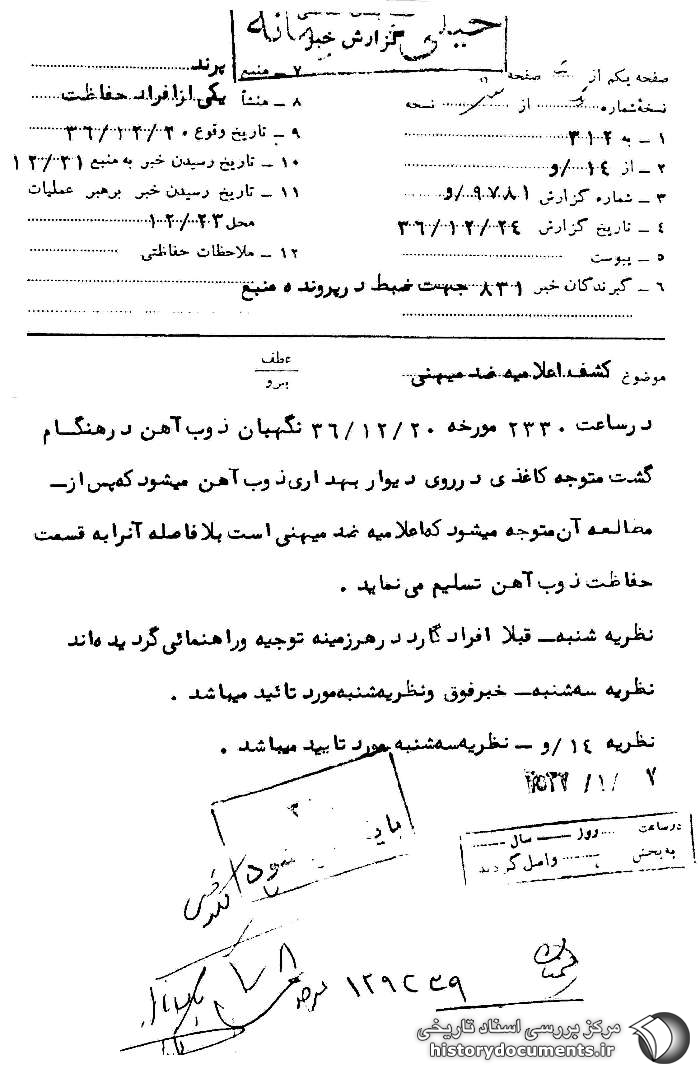 خیلی محرمانه
گزارش خبر
صفحه یکم از صفحه
نسخهٔ شماره از نسخه
۱ – به ۳۱۲
۲ – از ۱۴ /و
۳ – شماره گزارش ۹۷۸۱ /و
۴ – تاریخ گزارش ۳۶/۱۲/۲۴
۵ – پیوست
۶ – گیرندگان خبر ۸۳۱ جهت ضبط در پرونده منبع
۷ – منبع پرند
۸ – منشأ یکی از افراد حفاظت
۹ – تاریخ وقوع ۳۶/۱۲/۲۰
۱۰ – تاریخ رسیدن خبر به منبع ۱۲/۲۱
۱۱ – تاریخ رسیدن خبر برهبر عملیات
محل ۱۲/۲۳
۱۲ – ملاحظات حفاظتی
عطف
پیرو
موضوع کشف اعلامیه ضد میهنی
در ساعت ۲۳۳۰ مورخه ۳۶/۱۲/۲۰ نگهبان ذوب آهن در هنگام
گشت متوجه کاغذی در روی دیوار بهداری ذوب آهن میشود که پس از–
مطالعه آن متوجه میشود که اعلامیه ضد میهنی است بلافاصله آنرا به قسمت
حفاظت ذوب آهن تسلیم می نماید .
نظریه شنبه– قبلا افراد گارد در هر زمینه توجیه و راهنمائی گردیده اند
نظریه سه شنبه– خبر فوق و نظریه شنبه مورد تائید میباشد .
نظریه ۱۴ /و – نظریه سه شنبه مورد تایید میباشد .
در ساعت روز سال
به بخش واصل گردید
۱۲۹۲۳۹
مرکز بررسی اسناد تاریخی
historydocuments.ir